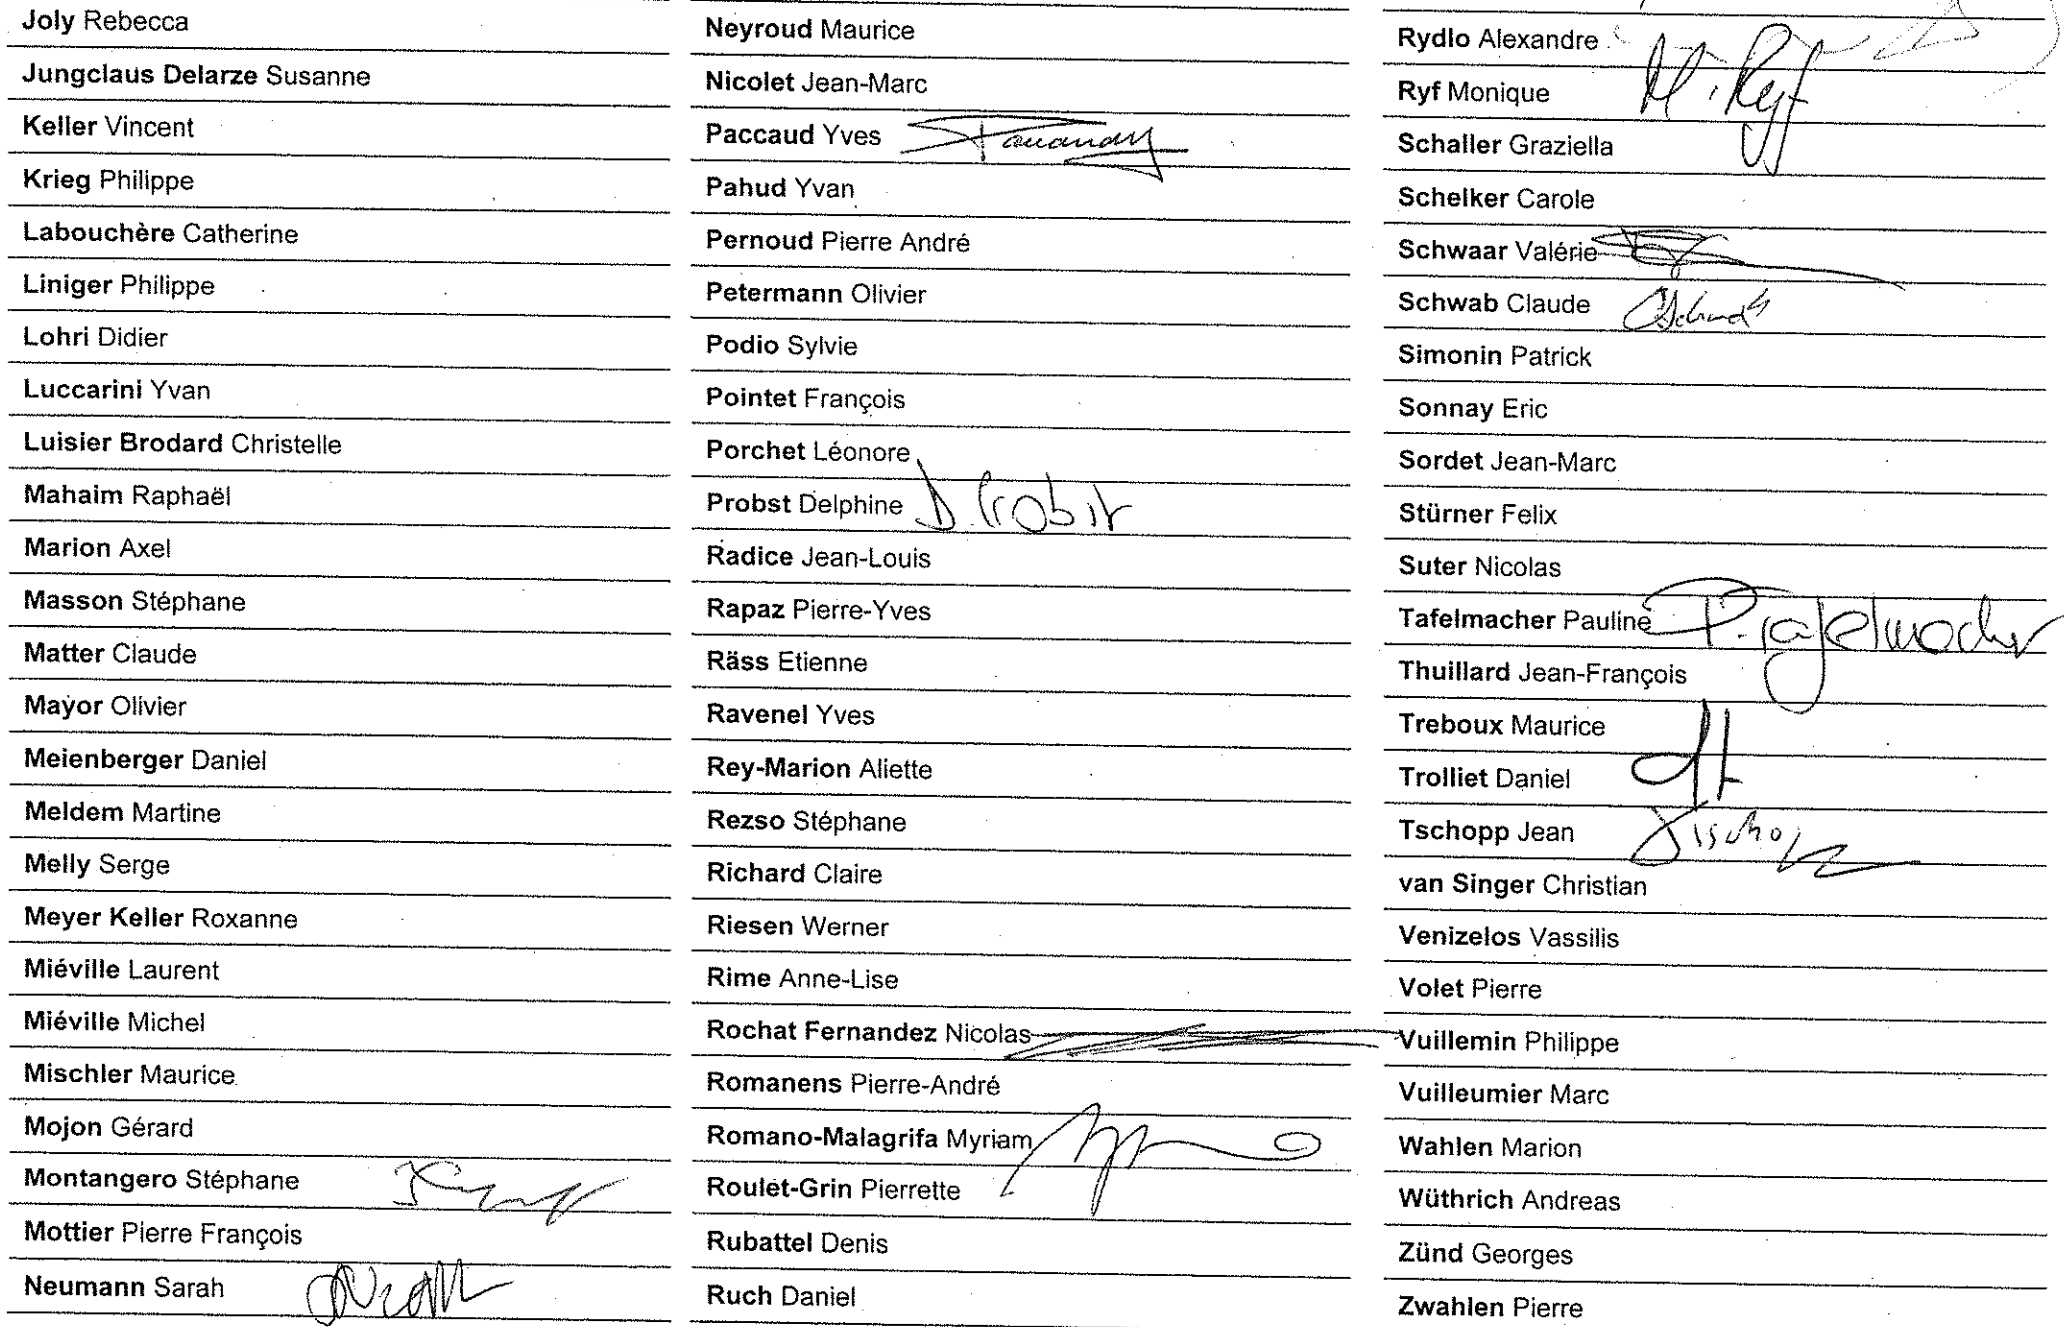 Joly Rebecca
Jungclaus Delarze Susanne
Keller Vincent
Krieg Philippe
Labouchère Catherine
Liniger Philippe
Lohri Didier
Luccarini Yvan
Luisier Brodard Christelle
Mahaim Raphaël
Marion Axel
Masson Stéphane
Matter Claude
Mayor Olivier
Meienberger Daniel
Meldem Martine
Melly Serge
Meyer Keller Roxanne
Miéville Laurent
Miéville Michel
Mischler Maurice
Mojon Gérard
Montangero Stéphane
Mottier Pierre François
Neumann Sarah
Neyroud Maurice
Nicolet Jean-Marc
Paccaud Yves
Pahud Yvan
Pernoud Pierre André
Petermann Olivier
Podio Sylvie
Pointet François
Porchet Léonore
Probst Delphine D. Probst
Radice Jean-Louis
Rapaz Pierre-Yves
Räss Etienne
Ravenel Yves
Rey-Marion Aliette
Rezso Stéphane
Richard Claire
Riesen Werner
Rime Anne-Lise
Rochat Fernandez Nicolas
Romanens Pierre-André
Romano-Malagrifa Myriam
Roulet-Grin Pierrette
Rubattel Denis
Ruch Daniel
Rydlo Alexandre
Ryf Monique M. Ryf
Schaller Graziella
Schelker Carole
Schwaar Valérie
Schwab Claude
Simonin Patrick
Sonnay Eric
Sordet Jean-Marc
Stürner Felix
Suter Nicolas
Tafelmacher Pauline P. Tafelmacher
Thuillard Jean-François
Treboux Maurice
Trolliet Daniel
Tschopp Jean
van Singer Christian
Venizelos Vassilis
Volet Pierre
Vuillemin Philippe
Vuilleumier Marc
Wahlen Marion
Wüthrich Andreas
Zünd Georges
Zwahlen Pierre